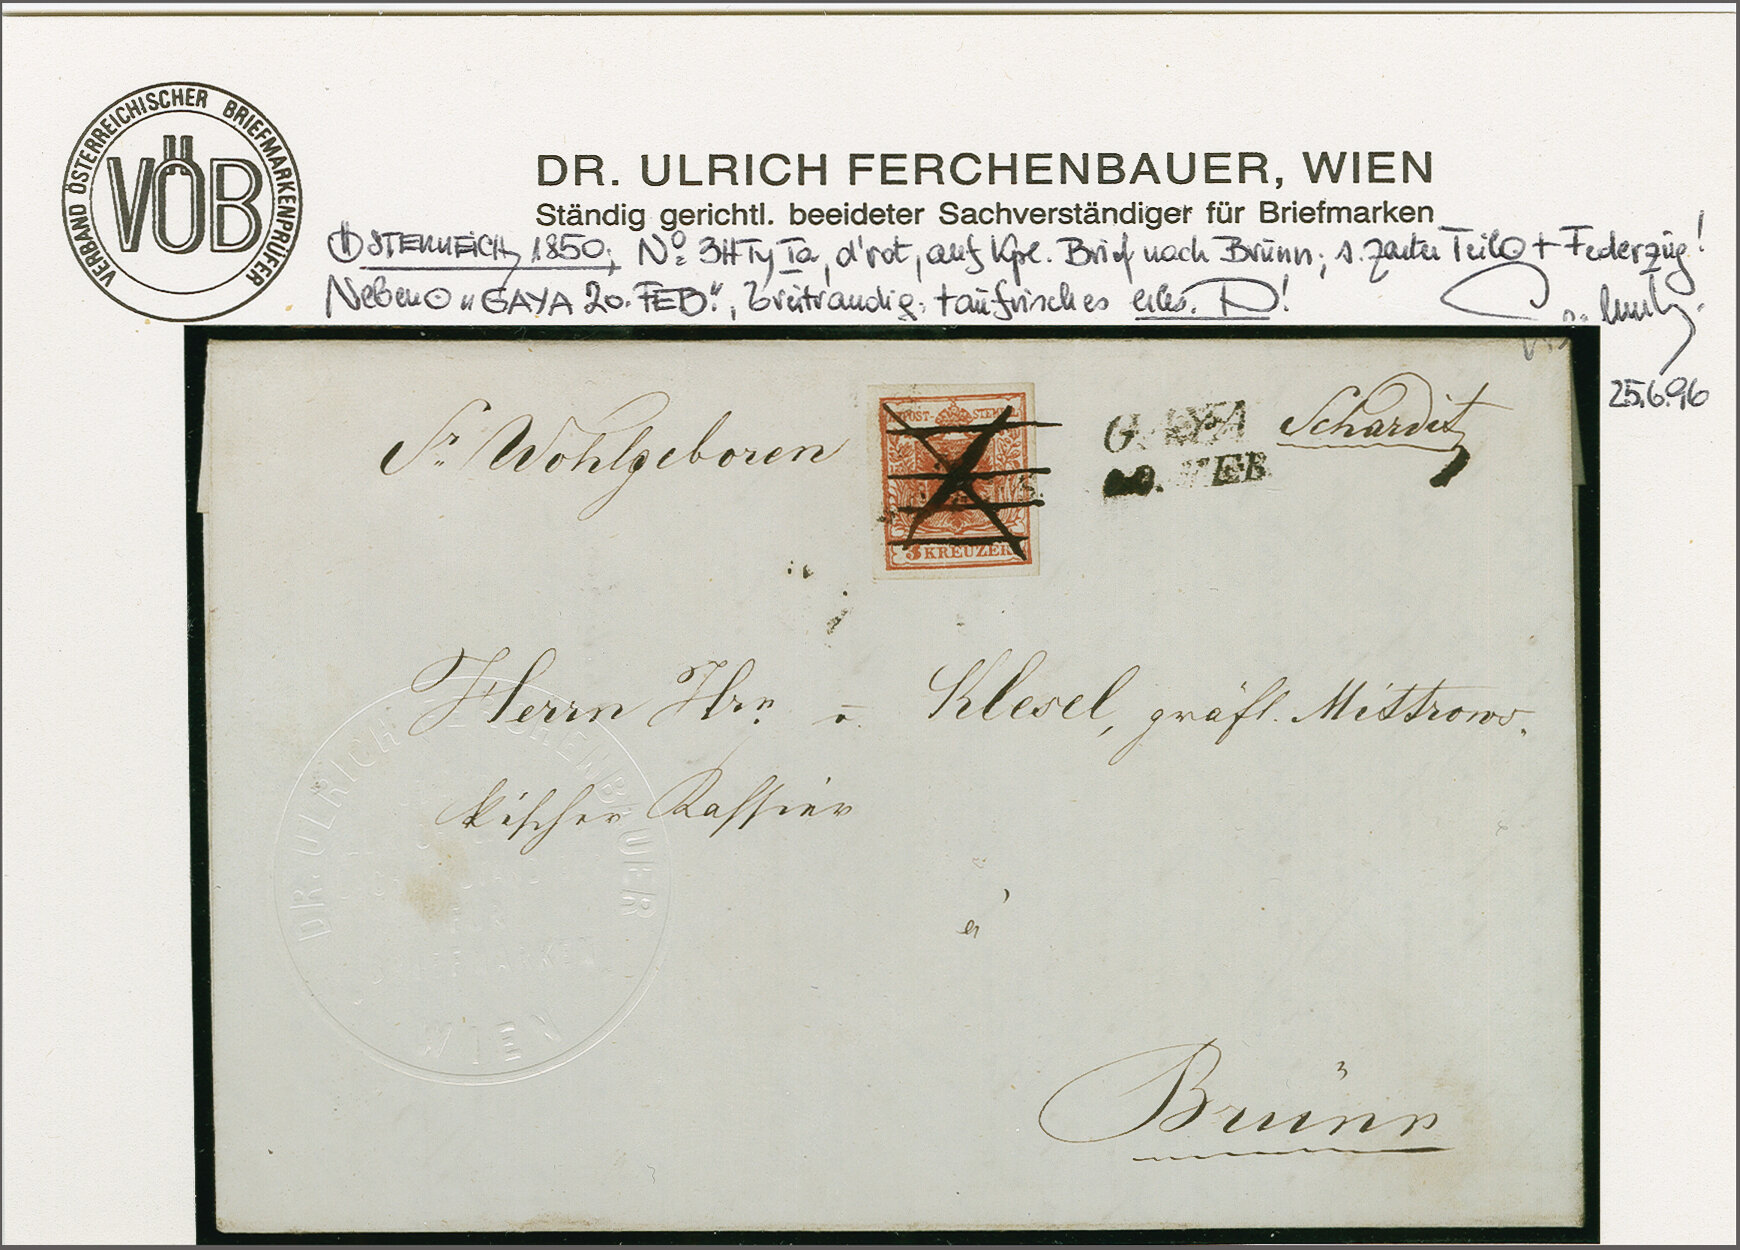 VERBAND ÖSTERREICHISCHER BRIEFMARKENPRÜFER
VÖB
DR. ULRICH FERCHENBAUER, WIEN
Ständig gerichtl. beeideter Sachverständiger für Briefmarken
ÖSTERREICH 1850; No 3H Ty Ia, d'rot, auf kpl. Brief nach Brünn; s. zarter Teil + Federzug!
Neben "GAYA 20. FEB.", breitrandig; taufrisches !
25.6.96
POST- STEMPEL
3 KREUZER
GAYA
20. FEB.
Schardit
Sr Wohlgeboren
Herrn Hrn v. Klesel, gräfl. Mittrows-
kischer Kassier
à
Brünn
DR. ULRICH FERCHENBAUER
WIEN